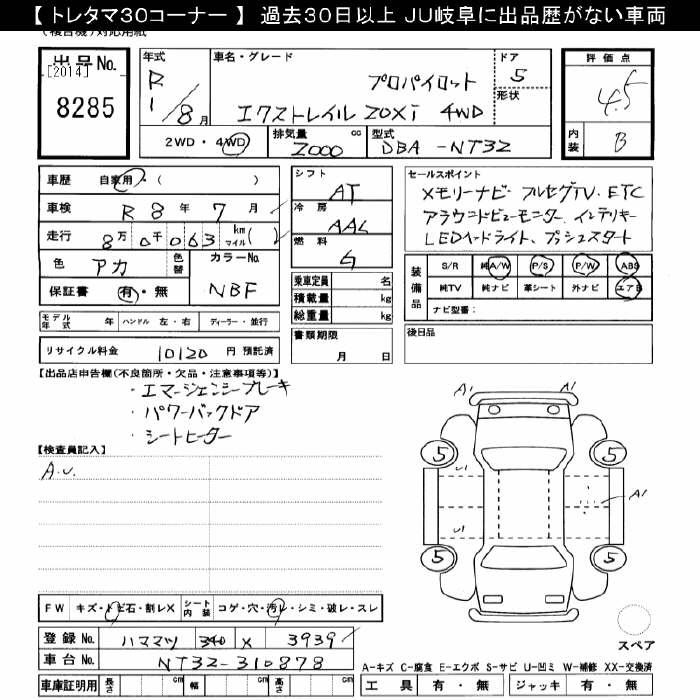 【 トレタマ30コーナー 】 過去30日以上 JU岐阜に出品歴がない車両
出品No.
[2014]
8285
年式
R
1/8月
車名・グレード
プロパイロット
エクストレイル 20Xi 4WD
ドア
5
形状
評価点
4.5
内装
B
2WD・4WD
排気量 cc
2000
型式
DBA -NT32
車歴 自家用・( )
車検 R 8年 7月
走行 8万 0千 063 km マイル( )
色 アカ 色替
カラーNo.
NBF
保証書 有・無
シフト
AT
冷房
AAC
燃料
G
乗車定員 名
積載量 kg
総重量 kg
セールスポイント
メモリーナビ フルセグTV、ETC
アラウンドビューモニター、インテリキー
LEDヘッドライト、プッシュスタート
装備品
S/R 純A/W P/S P/W ABS
純TV 純ナビ 革シート 外ナビ エアB
ナビ型番:
モデル年式 年 ハンドル 左・右 ディーラー・並行
書類期限
月 日
後日品
リサイクル料金 10120 円 預託済
【出品店申告欄(不良箇所・欠品・注意事項等)】
・エマージェンシーブレーキ
・パワーバックドア
・シートヒーター
【検査員記入】
A.U.
A1 A1
5 5
U1
A1
U1
5 5
スペア
FW キズ・トビ石・割レX シート内装 コゲ・穴・汚レ・シミ・破レ・スレ
登録No. ハママツ 340 X 3939
車台No. NT32-310878
A-キズ C-腐食 E-エクボ S-サビ U-凹ミ W-補修 XX-交換済
車庫証明用 長さ cm 幅 cm 高さ cm
工具 有・無 ジャッキ 有・無